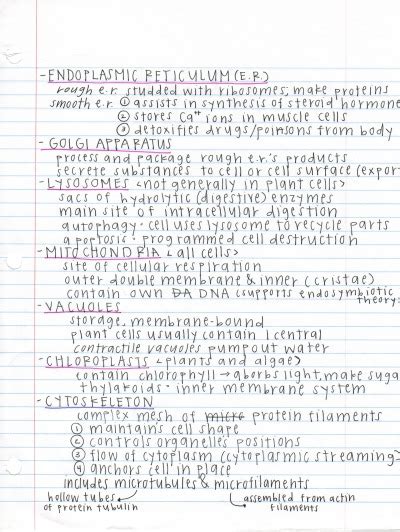 - ENDOPLASMIC RETICULUM (E.R.)
rough e.r. studded with ribosomes; make proteins
smooth e.r. ① assists in synthesis of steroid hormone
② stores Ca⁺⁺ ions in muscle cells
③ detoxifies drugs/poinsons from body
- GOLGI APPARATUS
process and package rough e.r.'s products
secrete substances to cell or cell surface (expor
- LYSOSOMES <not generally in plant cells>
sacs of hydrolytic (digestive) enzymes
main site of intracellular digestion
autophagy · cell uses lysosome to recycle parts
apoptosis · programmed cell destruction
- MITOCHONDRIA <all cells>
site of cellular respiration
outer double membrane & inner (cristae)
contain own DA DNA (supports endosymbiotic
theory)
- VACUOLES
storage, membrane-bound
plant cells usually contain 1 central
contractile vacuoles pump out water
- CHLOROPLASTS <plants and algae>
contain chlorophyll → aborbs light, make suga
thylakoids · inner membrane system
- CYTOSKELETON
complex mesh of micro protein filaments
① maintains cell shape
② controls organelles positions
③ flow of cytoplasm (cytoplasmic streaming)
④ anchors cell in place
includes microtubules & microfilaments
hollow tubes of protein tubulin
assembled from actin filaments